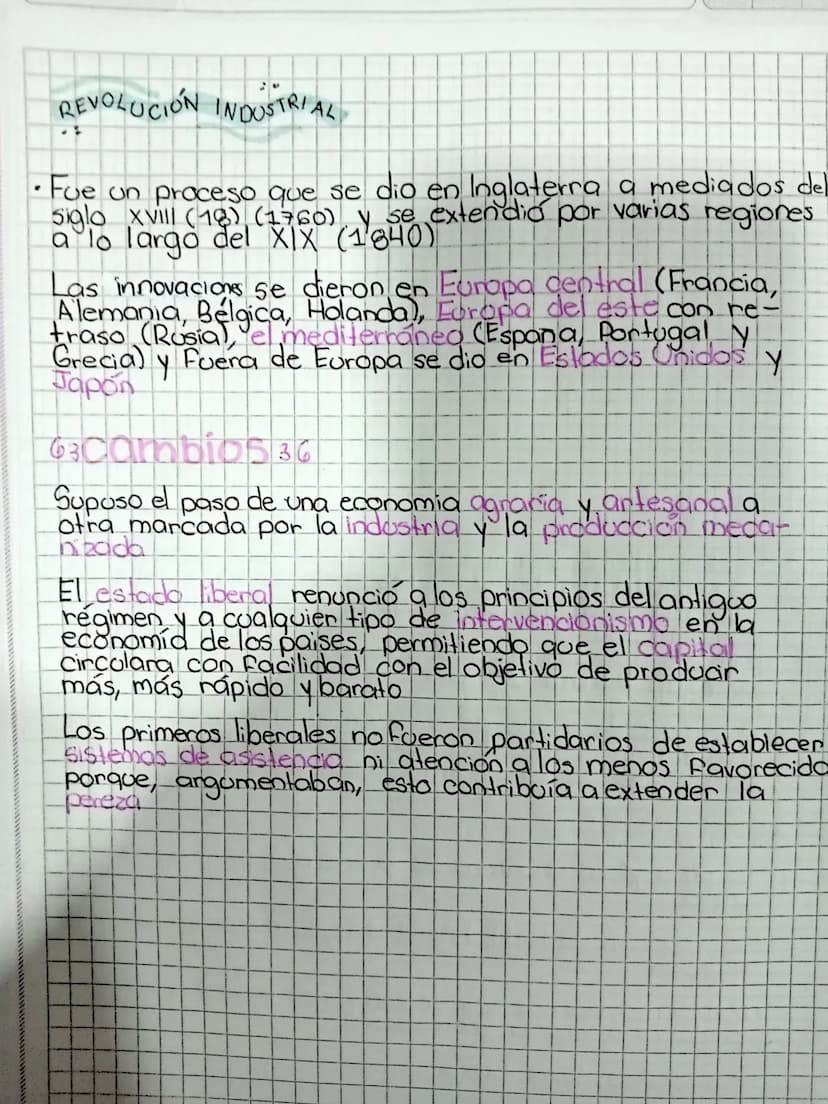 REVOLUCIÓN INDUSTRIAL
• Fue un proceso que se dio en Inglaterra a mediados del
siglo XVIII (18) (1760) y se extendió por varias regiones
a lo largo del XIX (1840)
Las innovaciones se dieron en Europa central (Francia,
Alemania, Bélgica, Holanda), Europa del este con re-
traso (Rusia), el mediterráneo (Espana, Portugal y
Grecia) y fuera de Europa se dio en Estados Unidos y
Japón
cambios
Supuso el paso de una economia agraria y artesanal a
otra marcada por la industria y la producción meca-
nizada
El estado liberal renunció a los principios del antiguo
régimen y a cualquier tipo de intervencionismo en la
economía de los paises, permitiendo que el capital
circulara con facilidad con el objetivo de producir
más, más rápido y barato
Los primeros liberales no fueron partidarios de establecer
sistemas de asistencia ni atención a los menos favorecido
porque, argumentaban, esto contribuía a extender la
pereza